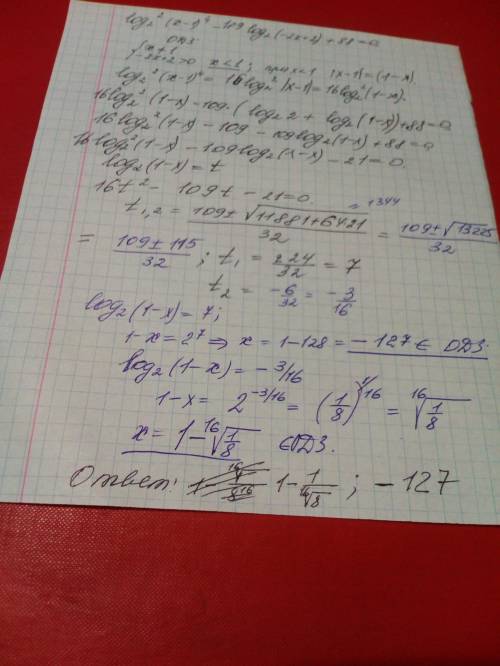 log₂² (x-1)⁴ - 109 log₂(-2x+2) + 88 = 0
ОДЗ
{x ≠ 1
{-2x+2>0 x<1; при x<1 |x-1| = (1-x).
log₂²(x-1)⁴ = 16 log₂² |x-1| = 16 log₂²(1-x).
16 log₂² (1-x) - 109 · (log₂ 2 + log₂(1-x)) + 88 = 0
16 log₂² (1-x) - 109 - 109 log₂(1-x) + 88 = 0
16 log₂²(1-x) - 109 log₂(1-x) - 21 = 0.
log₂(1-x) = t
16t² - 109t - 21 = 0. = 1344
t₁,₂ = (109 ± √(11881 + 6421))/32 = (109 ± √13225)/32
= (109 ± 115)/32 ; t₁ = 224/32 = 7
t₂ = -6/32 = -3/16
log₂(1-x) = 7;
1-x = 2⁷ ⇒ x = 1-128 = -127 ∈ ОДЗ.
log₂(1-x) = -3/16
1-x = 2^(-3/16) = (1/8)^(1/16) = ¹⁶√(1/8)
x = 1-¹⁶√(1/8) ∈ ОДЗ.
Ответ: 1-1/¹⁶√8 ; -127